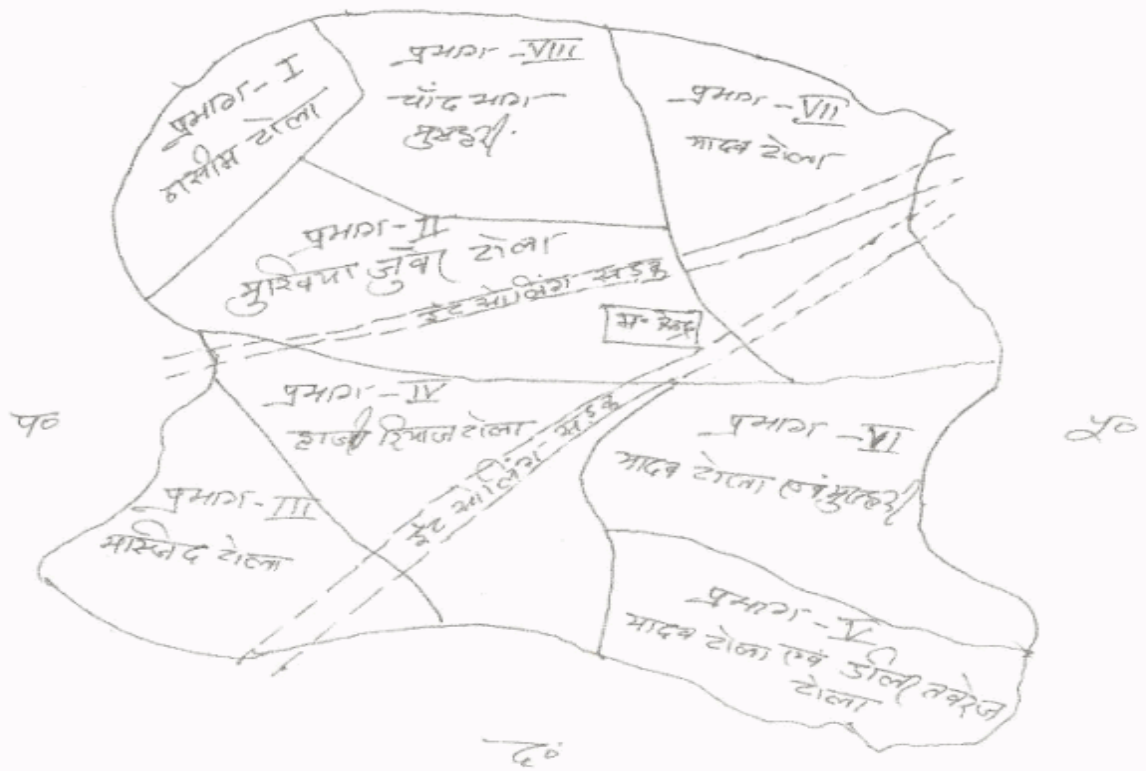 प्रभाग - I
नसीम टोला
प्रभाग - VIII
चाँद भाग
मुसहरी
प्रभाग - VII
यादव टोला
प्रभाग - II
मुखिया जुँवा टोला
ईंट सोलिंग सड़क
म० केन्द्र
प०
पू०
प्रभाग - IV
हाजी रियाज टोला
ईंट सोलिंग सड़क
प्रभाग - VI
यादव टोला एवं मुसहरी
प्रभाग - III
मस्जिद टोला
प्रभाग - V
यादव टोला एवं तवरेज
टोला
द०